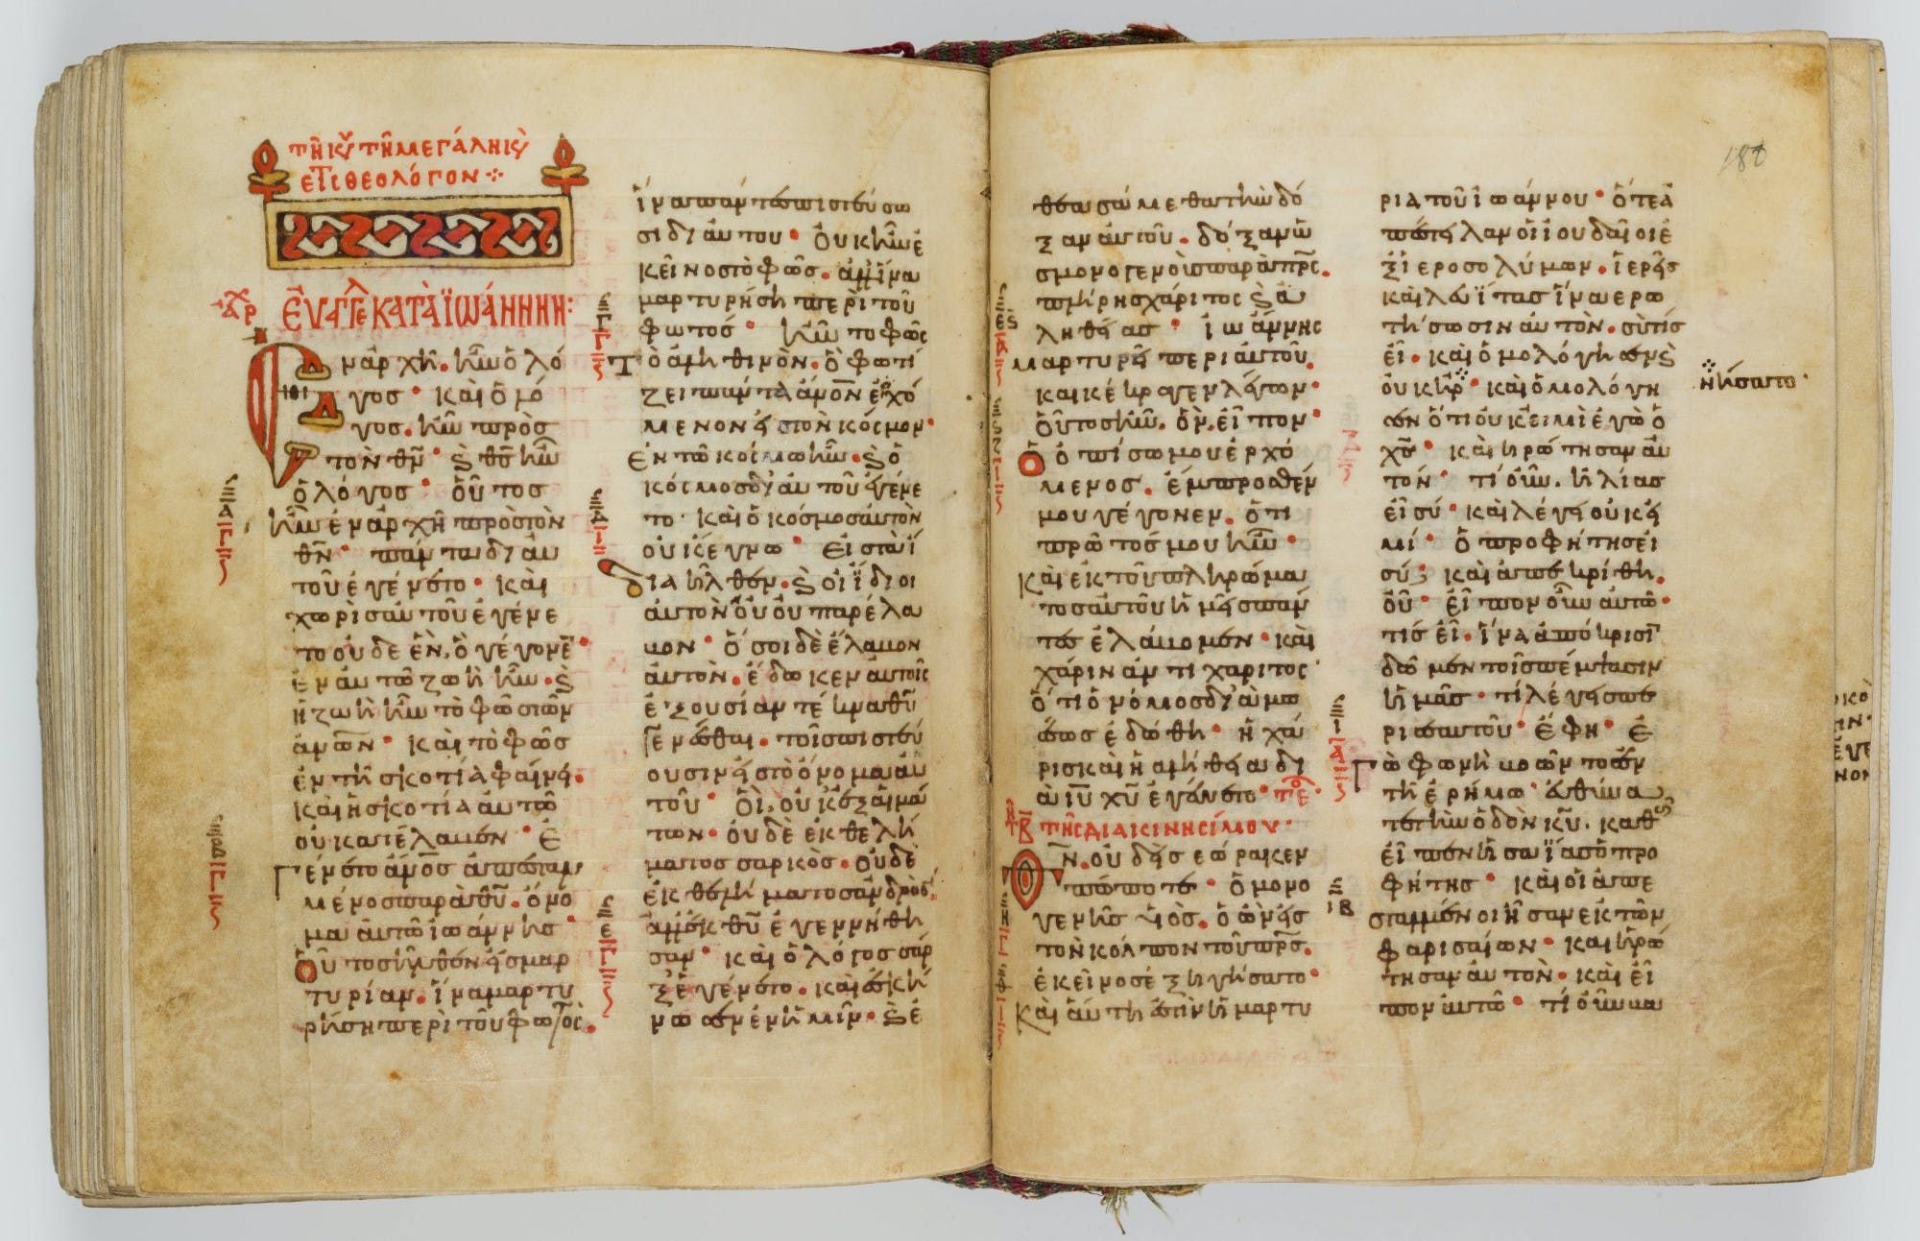 τῆ κυ τῆ μεγάλη κυ
ἐτι θεολόγον
ἐυαγγε κατὰ ϊωάννην:
Ἐν ἀρχῆ. ἦν ὁ λό
γος· καὶ ὁ λό
γος. ἦν πρὸς
τὸν θν· ϗ θς ἦν
ὁ λόγος· οὗτος
ἦν ἐν ἀρχῆ πρὸς τὸν
θν· πάντα δι ἀυ
τοῦ ἐγένετο· καὶ
χωρὶς ἀυτοῦ ἐγένε
το ὀυδε ἓν. ὃ γέγονε·
ἐν ἀυτῶ ζωὴ ἦν. ϗ
ἡ ζωὴ ἦν τὸ φῶς τῶν
ἀνων· καὶ τὸ φῶς
ἐν τῆ σκοτία φαίνει.
καὶ ἡ σκοτία ἀυτῶ
ὀυ κατέλαβεν· Ἐ
γένετο ἀνος ἀπεσταλ
μένος παρὰ θυ. ὄνο
μα ἀυτῶ ἰωάννης·
Οὗτος ἦλθεν εἰς μαρ
τυρίαν. ἵνα μαρτυ
ρήση περὶ τοῦ φωτος.
ἵνα πάντες πιστεύσω
σι δι ἀυτου· ὀυκ ἦν ἐ
κεῖνος τὸ φῶς. ἀλλ ἵνα
μαρτυρήση περὶ τοῦ
φωτός· ἦν το φῶς
Τὸ ἀληθινὸν. ὃ φωτί
ζει πάντα ἄνον ἐρχό
μενον εἰς τὸν κόσμον·
Ἐν τῶ κόσμω ἦν. ϗ ὁ
κόσμος δι ἀυτοῦ ἐγένε
το· καὶ ὁ κόσμος ἀυτὸν
οὐκ ἔγνω· Εἰς τὰ ἴ
δια ἦλθεν. ϗ οἱ ἴδιοι
ἀυτὸν ὀυ παρέλα
βον· ὅσοι δὲ ἔλαβον
ἀυτὸν. ἔδωκεν ἀυτοῖς
ἐξουσίαν τέκνα θυ
γενέσθαι. τοῖς πιστεύ
ουσιν εἰς τὸ ὄνομα ἀυ
τοῦ· οἳ. ὀυκ ἐξ αἱμά
των. ὀυδὲ ἐκ θελή
ματος σαρκὸς. ὀυδὲ
ἐκ θελήματος ἀνδρὸς.
ἀλλ ἐκ θυ ἐγεννήθη
σαν· καὶ ὁ λόγος σὰρ
ξ ἐγένετο. καὶ ἐσκή
νωσεν ἐν ἡμῖν. ϗ ἐ
θεασάμεθα τὴν δό
ξαν ἀυτοῦ. δόξαν ὡ
ς μονογενοῦς παρὰ πρς.
πλήρης χάριτος ϗ ἀ
ληθείας· ἰωάννης
μαρτυρεῖ περὶ ἀυτοῦ.
καὶ κέκραγεν λέγων·
οὗτος ἦν. ὃν εἶπον·
Ὁ ὀπίσω μου ἐρχό
μενος. ἔμπροσθέν
μου γέγονεν. ὅτι
πρῶτός μου ἦν·
Καὶ ἐκ τοῦ πληρώμα
τος ἀυτοῦ ἡμεῖς πάν
τες ἐλάβομεν· καὶ
χάριν ἀντι χάριτος·
ὅτι ὁ νόμος δια μω
σέως ἐδόθη· ἡ χά
ρις καὶ ἡ ἀλήθεια δι
ὰ ιυ χυ ἐγένετο· τελ
τῆς διακινησίμου·
Θν. ὀυδεὶς ἑώρακεν
πώποτε· ὁ μονο
γενὴς υἱός. ὁ ὢν εἰς
τὸν κόλπον τοῦ πρς.
ἐκεῖνος ἐξηγήσατο·
Καὶ ἅυτη ἐστὶν ἡ μαρτυ
ρια τοῦ ἰωάννου· ὅτε ἀ
πέστειλαν οἱ ἰουδαῖοι ἐ
ξ ἱεροσολύμων. ἱερεῖς
καὶ λευΐτας ἵνα ερω
τήσωσιν ἀυτὸν. σὺ τίς
εἶ. καὶ ὁμολόγησεν ϗ
ὀυκ ἠρ· καὶ ὁμολόγη
σεν ὅτι ὀυκ εἰμὶ ἐγὼ ὁ
χς· καὶ ἠρώτησαν ἀυ
τόν· τί ὀῦν. ἠλίας
εἶ σύ· καὶ λέγει ὀυκ εἰ
μί· ὁ προφήτης εἶ
σύ; καὶ ἀπεκρίθη.
ὀῦ· εἶπον ὀῦν ἀυτῶ·
τίς εἶ. ἵνα ἀπόκρισι
δῶμεν τοῖς πέμψασιν
ἡμᾶς· τί λέγεις πε
ρι σεαυτοῦ· ἔφη· Ἐ
Γὼ φωνὴ βοῶντος ἐν
τῆ ἐρήμω· ἐυθύνα
τε τὴν ὁδὸν κυ. καθ
εἶπεν ἡσαΐας ὁ προ
φήτης· καὶ οἱ ἀπε
σταλμένοι ἦσαν ἐκ τῶν
φαρισαίων· καὶ ἠρώ
τησαν ἀυτὸν· καὶ εἶ
πον ἀυτῶ· τί ὀῦν βα
ἠρνήσατο·
180